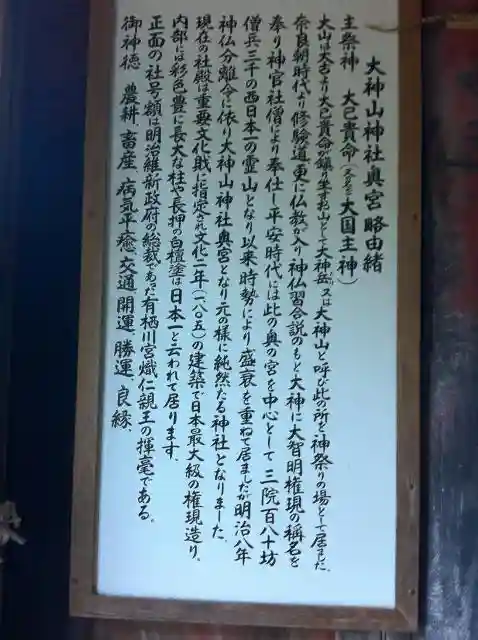 大神山神社奥宮略由緒
主祭神　大己貴命(又の名を大国主神)
大山は大古より大己貴命が鎮り坐すお山として大神岳、又は大神山と呼び此の所を神祭りの場として居ました。
奈良朝時代より修験道、更に仏教が入り神仏習合説のもと大神に大智明権現の稱名を
奉り神官社僧により奉仕し平安時代には此の奥の宮を中心として三院百八十坊
僧兵三千の西日本一の霊山となり以来、時勢により盛衰を重ねて居ましたが明治八年
神仏分離令に依り大神山神社奥宮となり元の様に純然たる神社となりました。
現在の社殿は重要文化財に指定され文化二年(一八〇五)の建築で日本最大級の権現造り、
内部には彩色豊に長大な柱や長押の白檀塗は日本一と云われて居ります。
正面の社号額は明治維新政府の総裁であった有栖川宮熾仁親王の揮毫である。
御神徳　農耕、畜産、病気平癒、交通、開運、勝運、良縁、